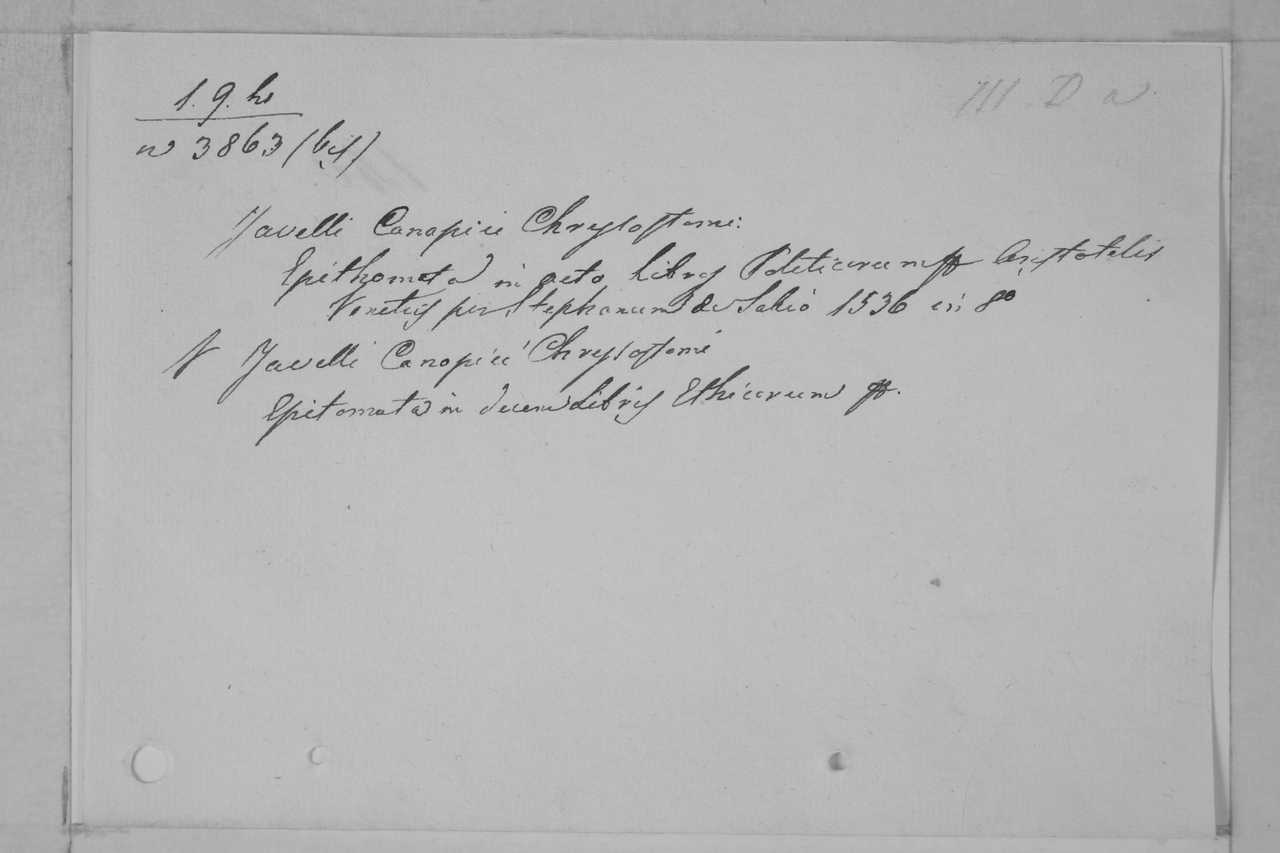 1. 9. h
III. D a
n 3863 (bis)
Javelli Canapicii Chrysostomi:
Epithomata in octo Libros Politicorum Aristotelis
Venetiis per Stephanum de Sabio 1536 in 8º
Javelli Canapicii Chrysostomi
Epitomata in decem Libris Ethicorum